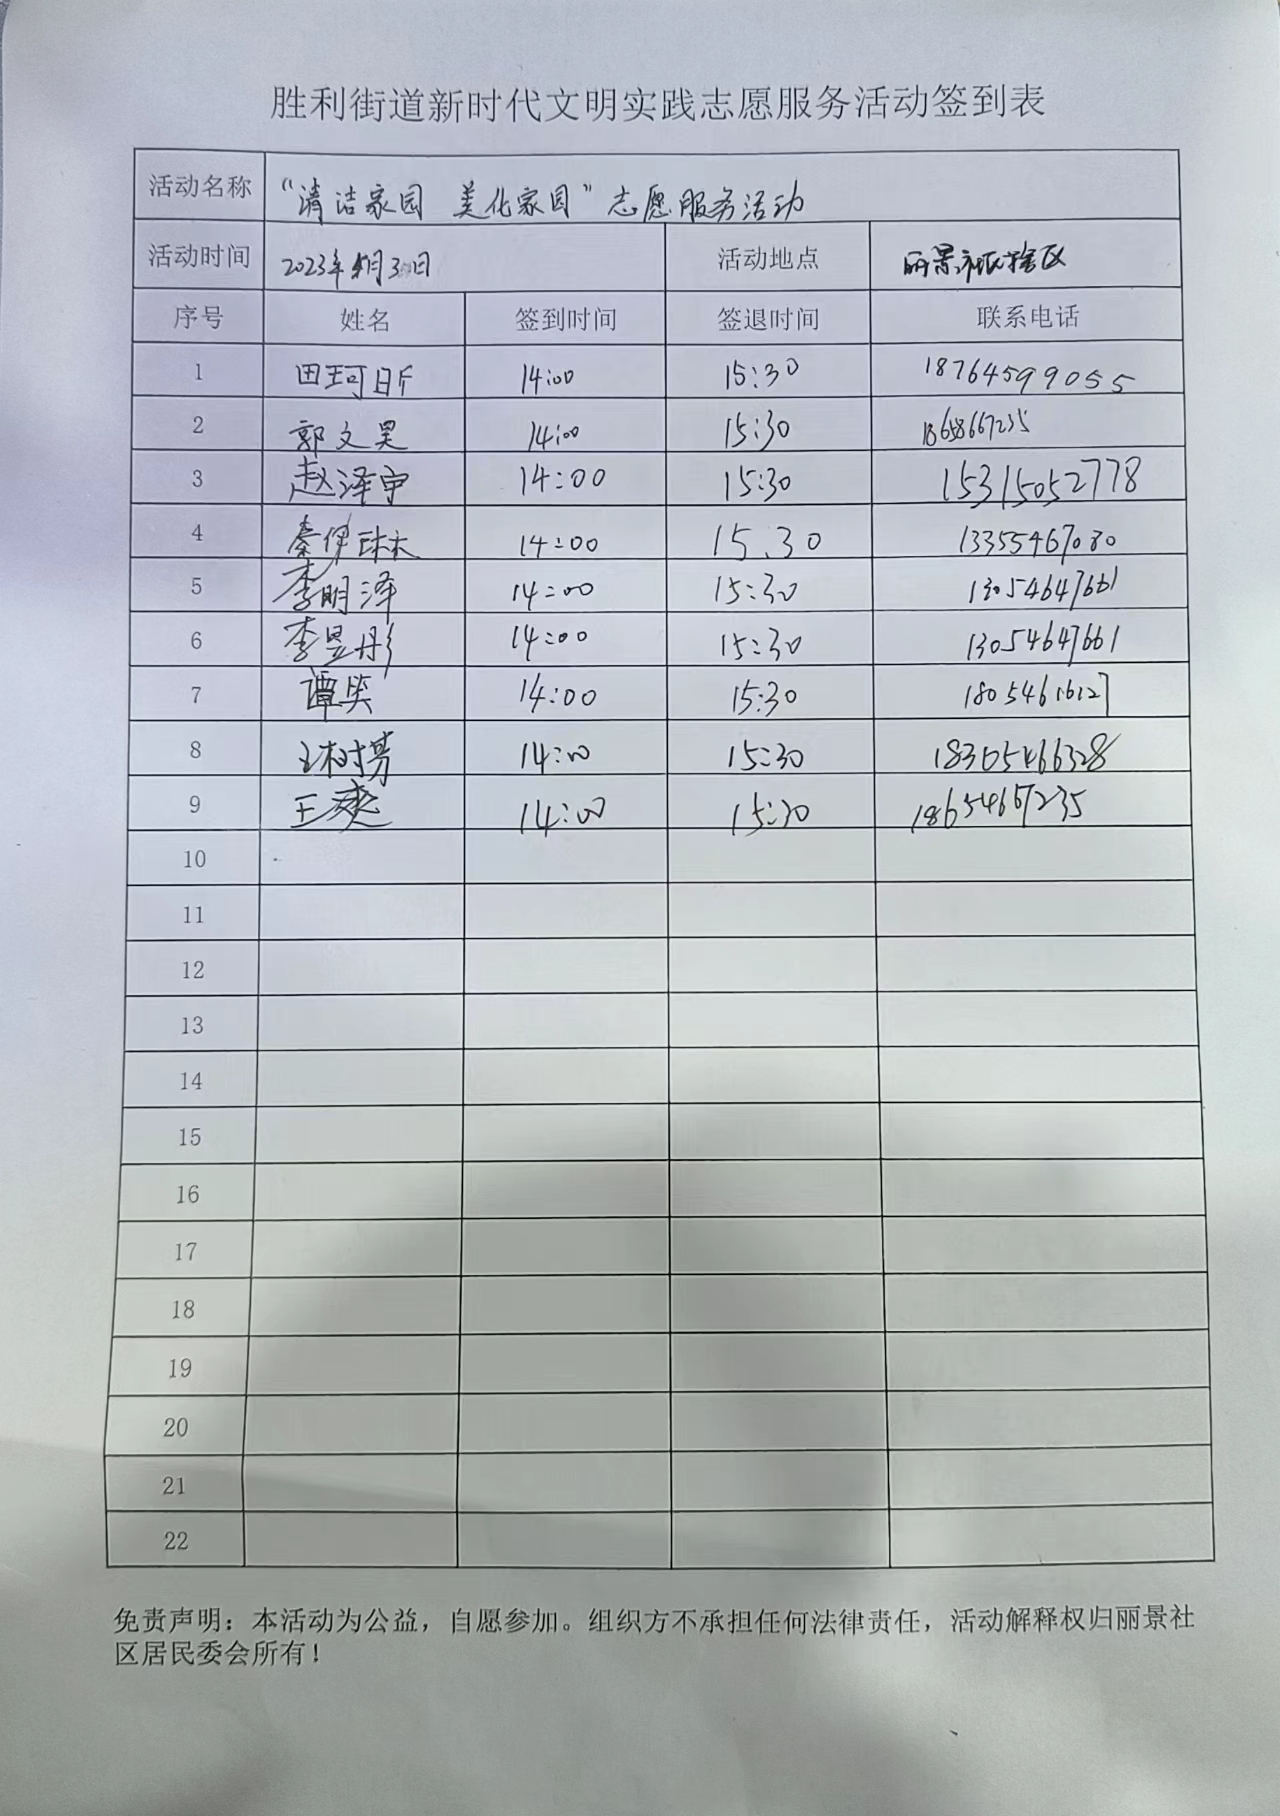 胜利街道新时代文明实践志愿服务活动签到表
活动名称 “清洁家园 美化家园”志愿服务活动
活动时间 2023年 月3 日 活动地点 丽景社区
序号 姓名 签到时间 签退时间 联系电话
1 田珂昕 14:00 15:30 18764599055
2 郭文昊 14:00 15:30 18658667235
3 赵泽宇 14:00 15:30 15315052778
4 秦伊琳 14:00 15.30 13355467080
5 李明泽 14:00 15:30 13054647661
6 李昱彤 14:00 15:30 13054647661
7 谭笑 14:00 15:30 18054616127
8 王树芳 14:00 15:30 18305466328
9 王爽 14:00 15:30 18654667235
10
11
12
13
14
15
16
17
18
19
20
21
22
免责声明：本活动为公益，自愿参加。组织方不承担任何法律责任，活动解释权归丽景社
区居民委会所有！